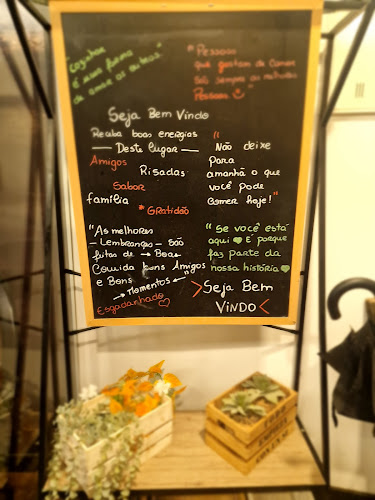 "Cozinhar
é uma forma
de amar os outros"
"Pessoas
que gostam de comer
são sempre as melhores
Pessoas
Seja Bem Vindo
Receba boas energias
Deste lugar
Amigos
Risadas
Sabor
família
* Gratidão
"Não deixe
para
amanhã o que
você pode
comer hoje!"
"As melhores
Lembranças são
feitas de Boa
Comida bons Amigos
e Bons
Momentos"
Esgadanhado
"Se você está
aqui é porque
faz parte da
nossa história
Seja Bem
Vindo